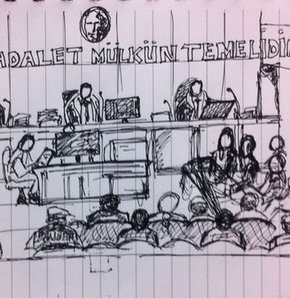 ADALET MÜLKÜN TEMELİDİR